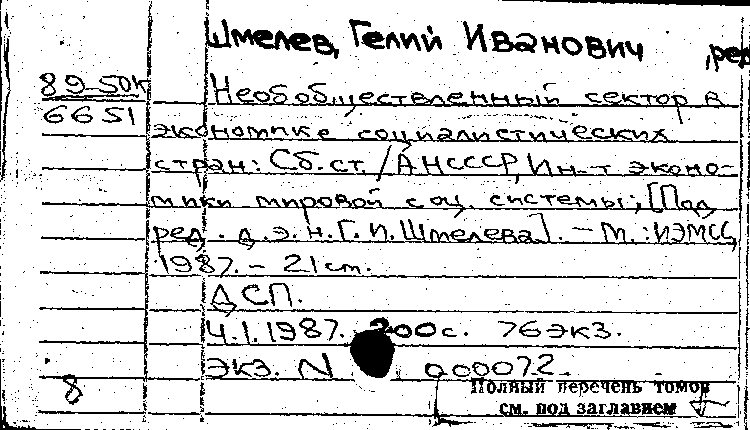 Шмелев, Гелий Иванович, ред
89-50к
6651
Необобществленный сектор в
экономике социалистических
стран: Сб. ст. / АН СССР, Ин-т эконо-
мики мировой соц. системы; [Под
ред. д.э.н. Г.И. Шмелева]. — М.: ИЭМСС,
1987. – 21 cm.
ДСП.
Ч.1. 1987. 200с. 76экз.
экз. N 000072.
8
Полный перечень томов
см. под заглавием